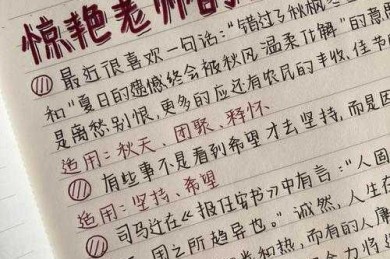 惊艳老师的
① 最近很喜欢一句话:“错过了秋枫
和“夏日的遗憾终会被秋风温柔化解”的意
是离愁别恨,更多的应还有农民的丰收,佳节
适用:秋天、团聚、释怀
① 有些事不是看到希望才去坚持,而是因
适用:坚持、希望
① 司马迁在《报任安书》中有言:“人固
用之所趋异也。”诚然,人生在
类和热,而有的人庸